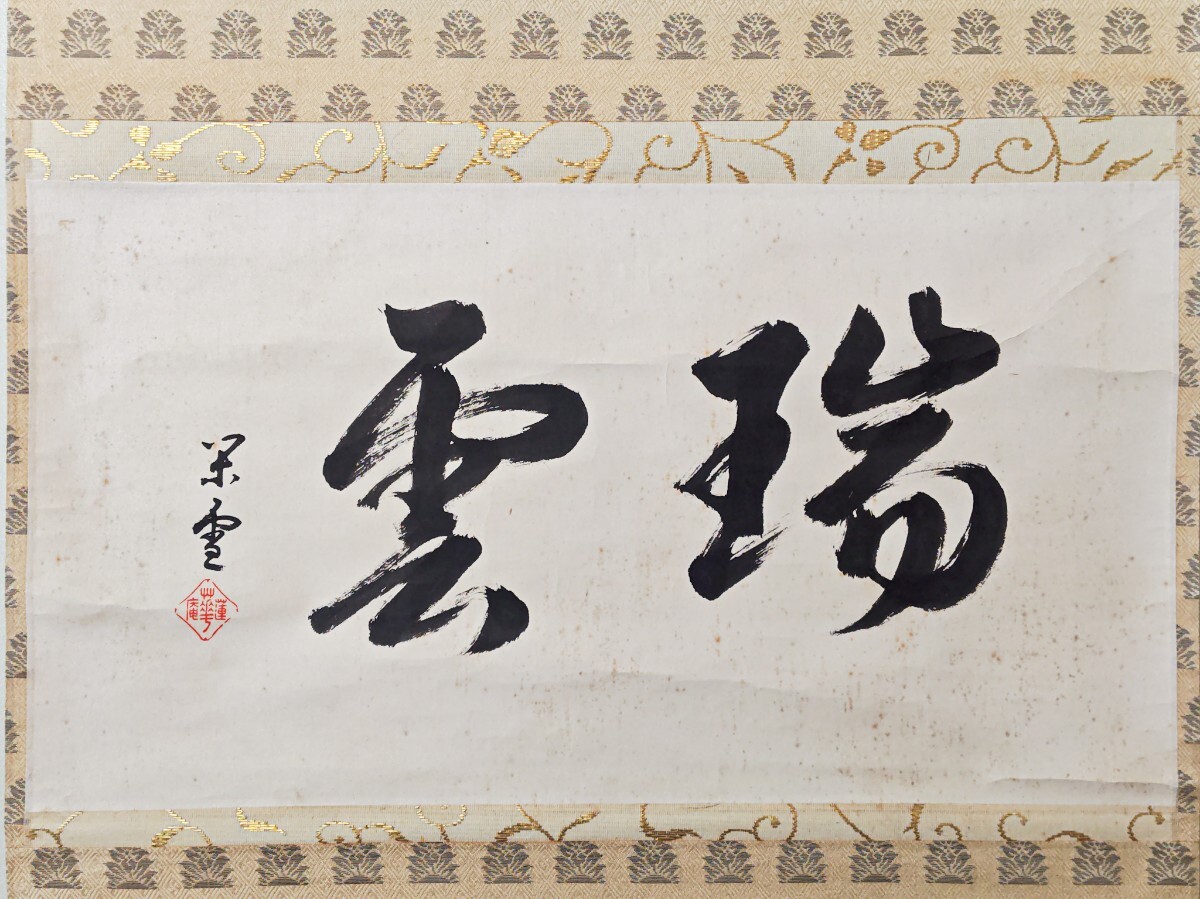 瑞雲
閑雪
蓮華庵